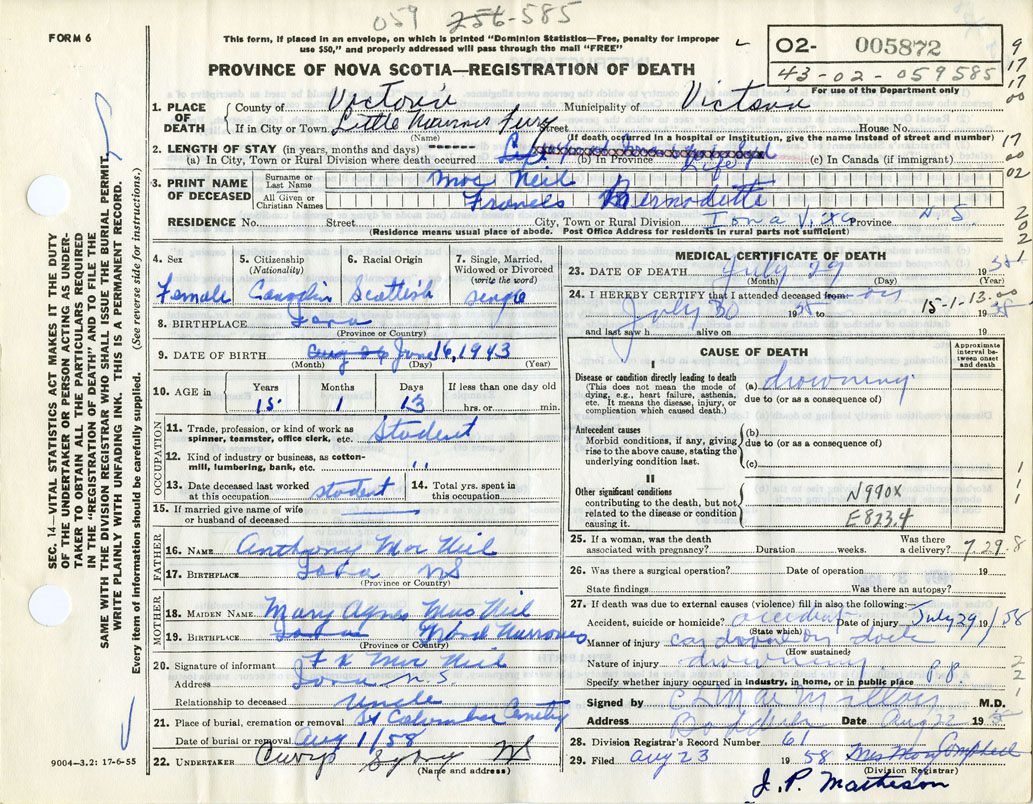 059 256-585
FORM 6
This form, if placed in an envelope, on which is printed "Dominion Statistics—Free, penalty for improper
use $50," and properly addressed will pass through the mail "FREE"
02- 005872
43-02-059585
For use of the Department only
9
17
17
00
PROVINCE OF NOVA SCOTIA—REGISTRATION OF DEATH
1. PLACE OF DEATH
County of Victoria Municipality of Victoria
If in City or Town Little Narrows Ferry Street House No.
(Name) (If death occurred in a hospital or institution, give the name instead of street and number)
2. LENGTH OF STAY (in years, months and days)
(a) In City, Town or Rural Division where death occurred (b) In Province Life (c) In Canada (if immigrant)
17
00
02
3. PRINT NAME OF DECEASED
Surname or Last Name Mac Neil
All Given or Christian Names Francis Bernadette
RESIDENCE No. Street City, Town or Rural Division Iona Province N S
(Residence means usual place of abode. Post Office Address for residents in rural parts not sufficient)
2
0
2
1
4. Sex Female
5. Citizenship (Nationality) Canadian
6. Racial Origin Scottish
7. Single, Married, Widowed or Divorced (write the word) single
8. BIRTHPLACE Iona
(Province or Country)
9. DATE OF BIRTH Aug 26 June 16, 1943
(Month) (Day) (Year)
10. AGE in Years Months Days If less than one day old
15 1 13 hrs. or min.
OCCUPATION
11. Trade, profession, or kind of work as
spinner, teamster, office clerk, etc. Student
12. Kind of industry or business, as cotton-
mill, lumbering, bank, etc. "
13. Date deceased last worked
at this occupation student
14. Total yrs. spent in
this occupation
15. If married give name of wife
or husband of deceased
FATHER
16. NAME Anthony Mac Neil
17. BIRTHPLACE Iona NS
(Province or Country)
MOTHER
18. MAIDEN NAME Mary Agnes Mac Neil
19. BIRTHPLACE Iona Narrows
(Province or Country)
20. Signature of informant F X Mac Neil
Address Iona N.S
Relationship to deceased Uncle
21. Place of burial, cremation or removal St Columba Cemetery
Date of burial or removal Aug 1/58
22. UNDERTAKER Sydney NS
(Name and address)
MEDICAL CERTIFICATE OF DEATH
23. DATE OF DEATH July 29 1958
(Month) (Day)
24. I HEREBY CERTIFY that I attended deceased from: on
15-1-13.00
July 30 1958 to 1958
and last saw h alive on 19
CAUSE OF DEATH
Approximate interval between onset and death
I
Disease or condition directly leading to death
(This does not mean the mode of
dying, e.g., heart failure, asthenia,
etc. It means the disease, injury, or
complication which caused death.)
(a) drowning
due to (or as a consequence of)
Antecedent causes
Morbid conditions, if any, giving
rise to the above cause, stating the
underlying condition last.
(b)
due to (or as a consequence of)
(c)
II
Other significant conditions
contributing to the death, but not
related to the disease or condition
causing it.
N990X
E823.4
1
1
1
25. If a woman, was the death
associated with pregnancy? Duration weeks. Was there a delivery? 7.29.8
26. Was there a surgical operation? Date of operation 19
State findings Was there an autopsy?
27. If death was due to external causes (violence) fill in also the following:—
Accident, suicide or homicide? accident Date of injury July 29 19/58
(State which)
Manner of injury car drove on dock
(How sustained)
Nature of injury drowning
Specify whether injury occurred in industry, in home, or in public place P.P.
2
2
1
Signed by C L MacMillan M.D.
Address Baddeck Date Aug 22 19
28. Division Registrar's Record Number 61
29. Filed Aug 23 1958 Mrs Mary Campbell
(Division Registrar)
J. P. Matheson
SEC. 14—VITAL STATISTICS ACT MAKES IT THE DUTY
OF THE UNDERTAKER OR PERSON ACTING AS UNDER-
TAKER TO OBTAIN ALL THE PARTICULARS REQUIRED
IN THE "REGISTRATION OF DEATH" AND TO FILE THE
SAME WITH THE DIVISION REGISTRAR WHO SHALL ISSUE THE BURIAL PERMIT.
WRITE PLAINLY WITH UNFADING INK. THIS IS A PERMANENT RECORD.
Every item of information should be carefully supplied. (See reverse side for instructions.)
9004-3.2: 17-6-55